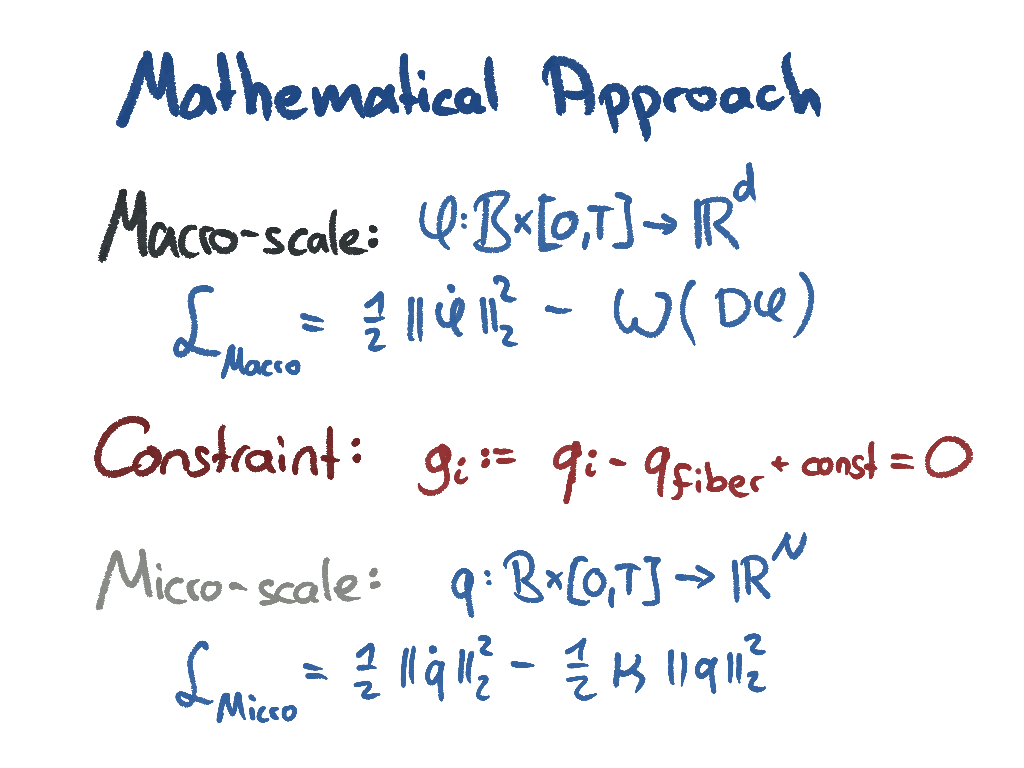 Mathematical Approach
Macro-scale: φ: B×[0,T] → ℝ^d
ℒ_Macro = 1/2 ‖φ̇‖₂² - W(Dφ)
Constraint: g_i := q_i - q_fiber + const = 0
Micro-scale: q: B×[0,T] → ℝ^N
ℒ_Micro = 1/2 ‖q̇‖₂² - 1/2 κ ‖q‖₂²